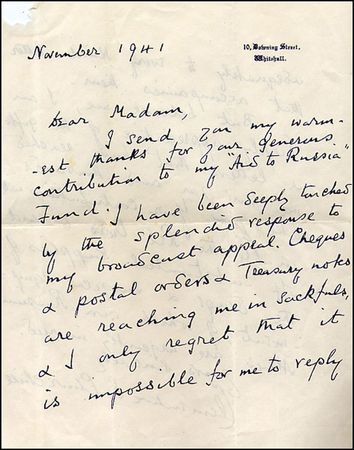 November 1941
10, Downing Street,
Whitehall.
Dear Madam,
I send you my warm-
-est thanks for your generous
contribution to my "Aid to Russia"
Fund. I have been deeply touched
by the splendid response to
my broadcast appeal. Cheques
& postal orders & Treasury notes
are reaching me in sackfuls,
& I only regret that it
is impossible for me to reply